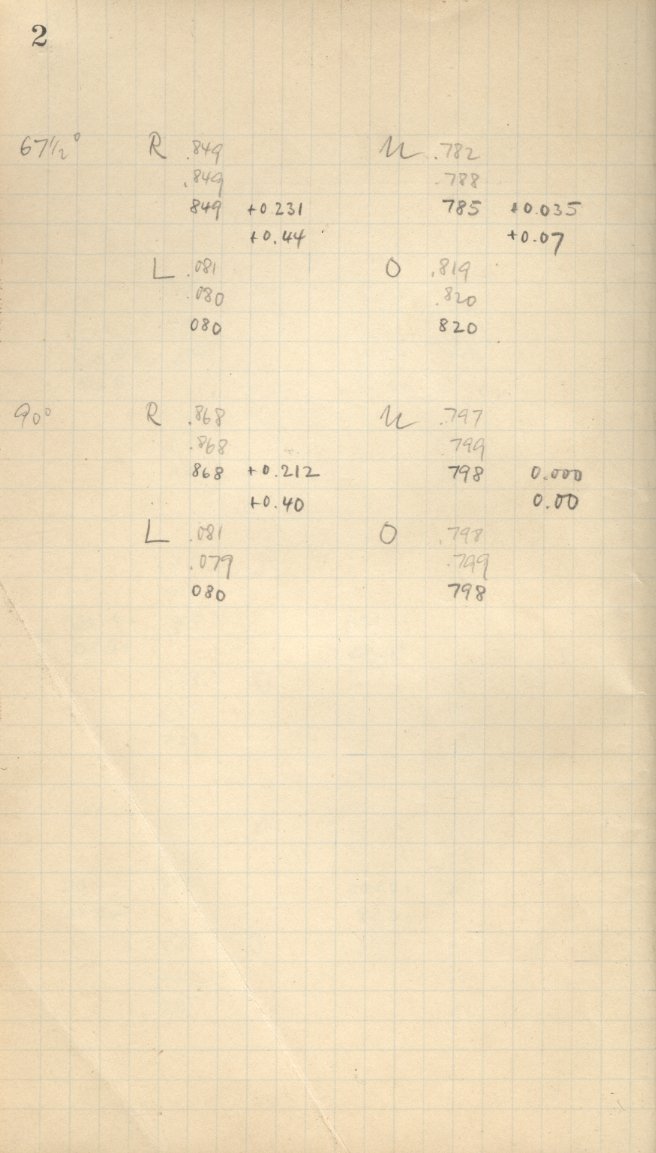 2
67½° R .849 U .782
.849 .788
849 +0.231 785 +0.035
+0.44 +0.07
L .081 O .819
.080 .820
080 820
90° R .868 U .797
.868 .799
868 +0.212 798 0.000
+0.40 0.00
L .081 O .798
.079 .799
080 798